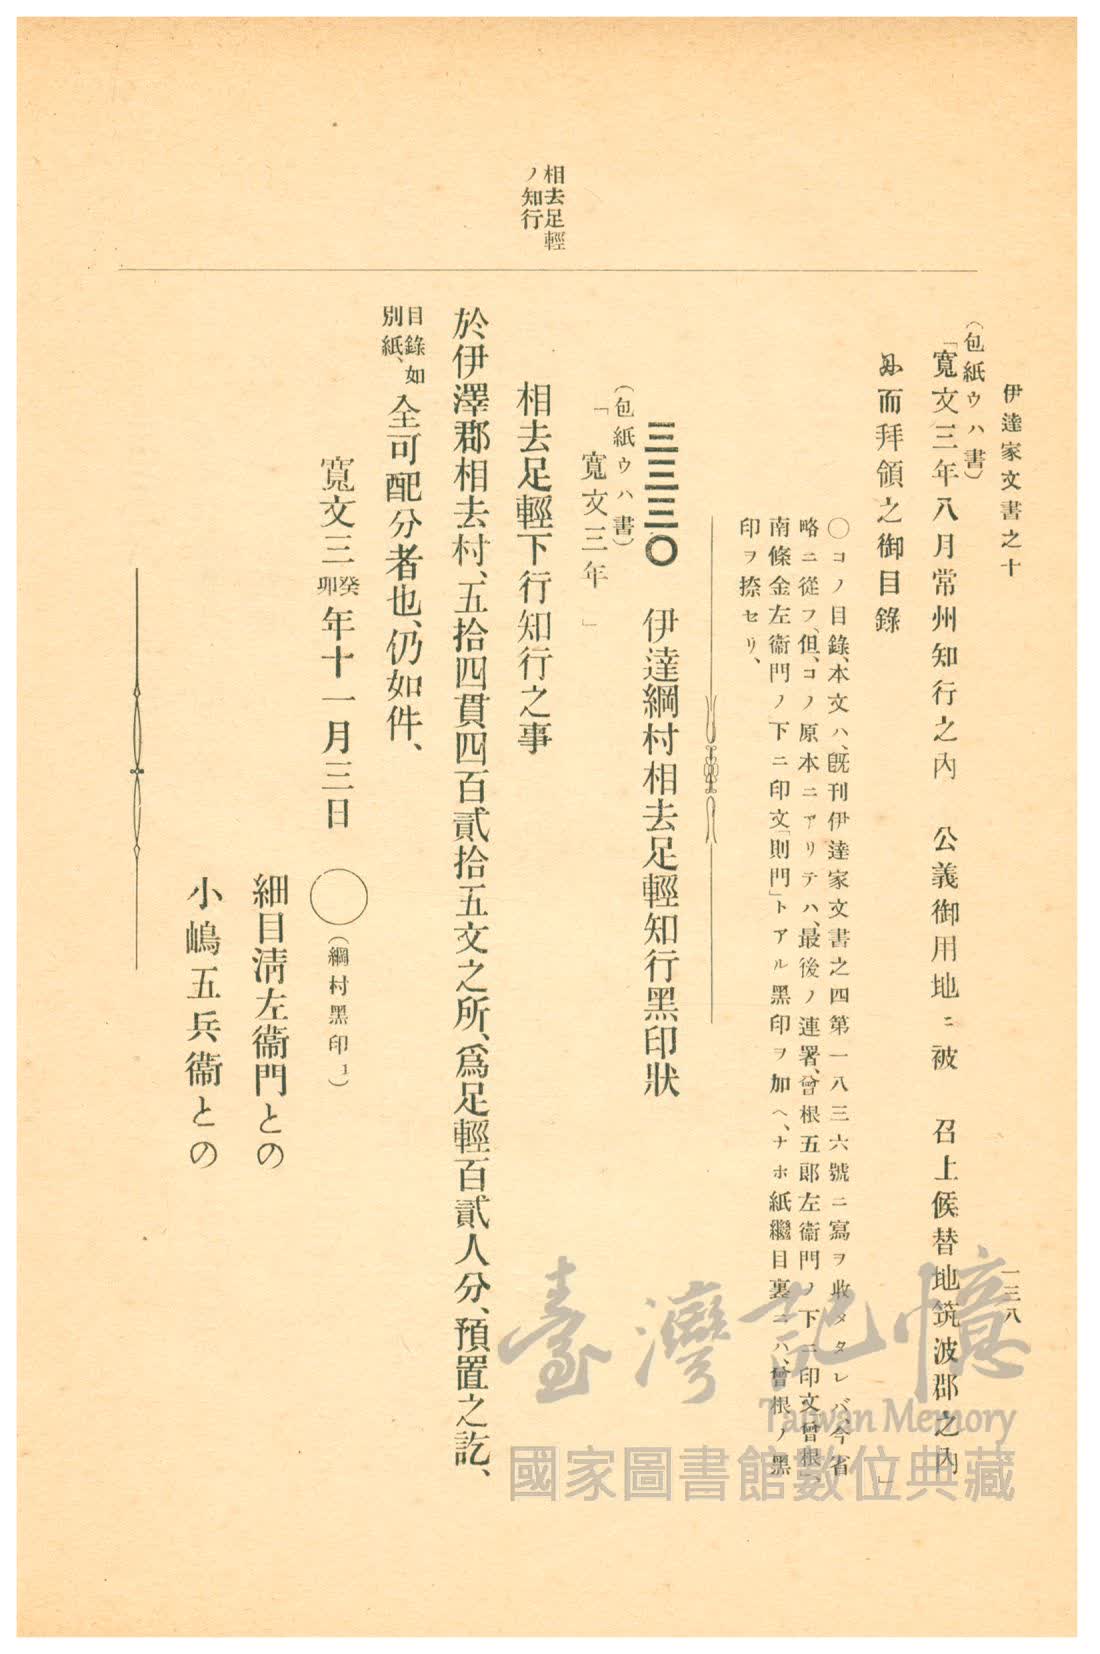 伊達家文書之十
一三八
(包紙ウハ書)
「寛文三年八月常州知行之内　公義御用地ニ被　召上候替地筑波郡之内
而拜領之御目錄」
〇コノ目錄、本文ハ、旣刊伊達家文書之四第一八三六號ニ寫ヲ收メタレバ、今省
略ニ從フ、但、コノ原本ニアリテハ、最後ノ連署、曾根五郎左衞門ノ下ニ印文「曾根」、
南條金左衞門ノ下ニ印文「則門」トアル黑印ヲ加ヘ、ナホ紙繼目裏ニハ、曾根ノ黑
印ヲ捺セリ、
相去足輕
ノ知行
三三三〇　伊達綱村相去足輕知行黑印狀
(包紙ウハ書)
「寬文三年」
相去足輕下行知行之事
於伊澤郡相去村、五拾四貫四百貳拾五文之所、爲足輕百貳人分、預置之訖、
目錄如
別紙、
全可配分者也、仍如件、
寬文三癸卯年十一月三日　〇(綱村黑印1)
細目淸左衞門との
小嶋五兵衞との
臺灣記憶
Taiwan Memory
國家圖書館數位典藏